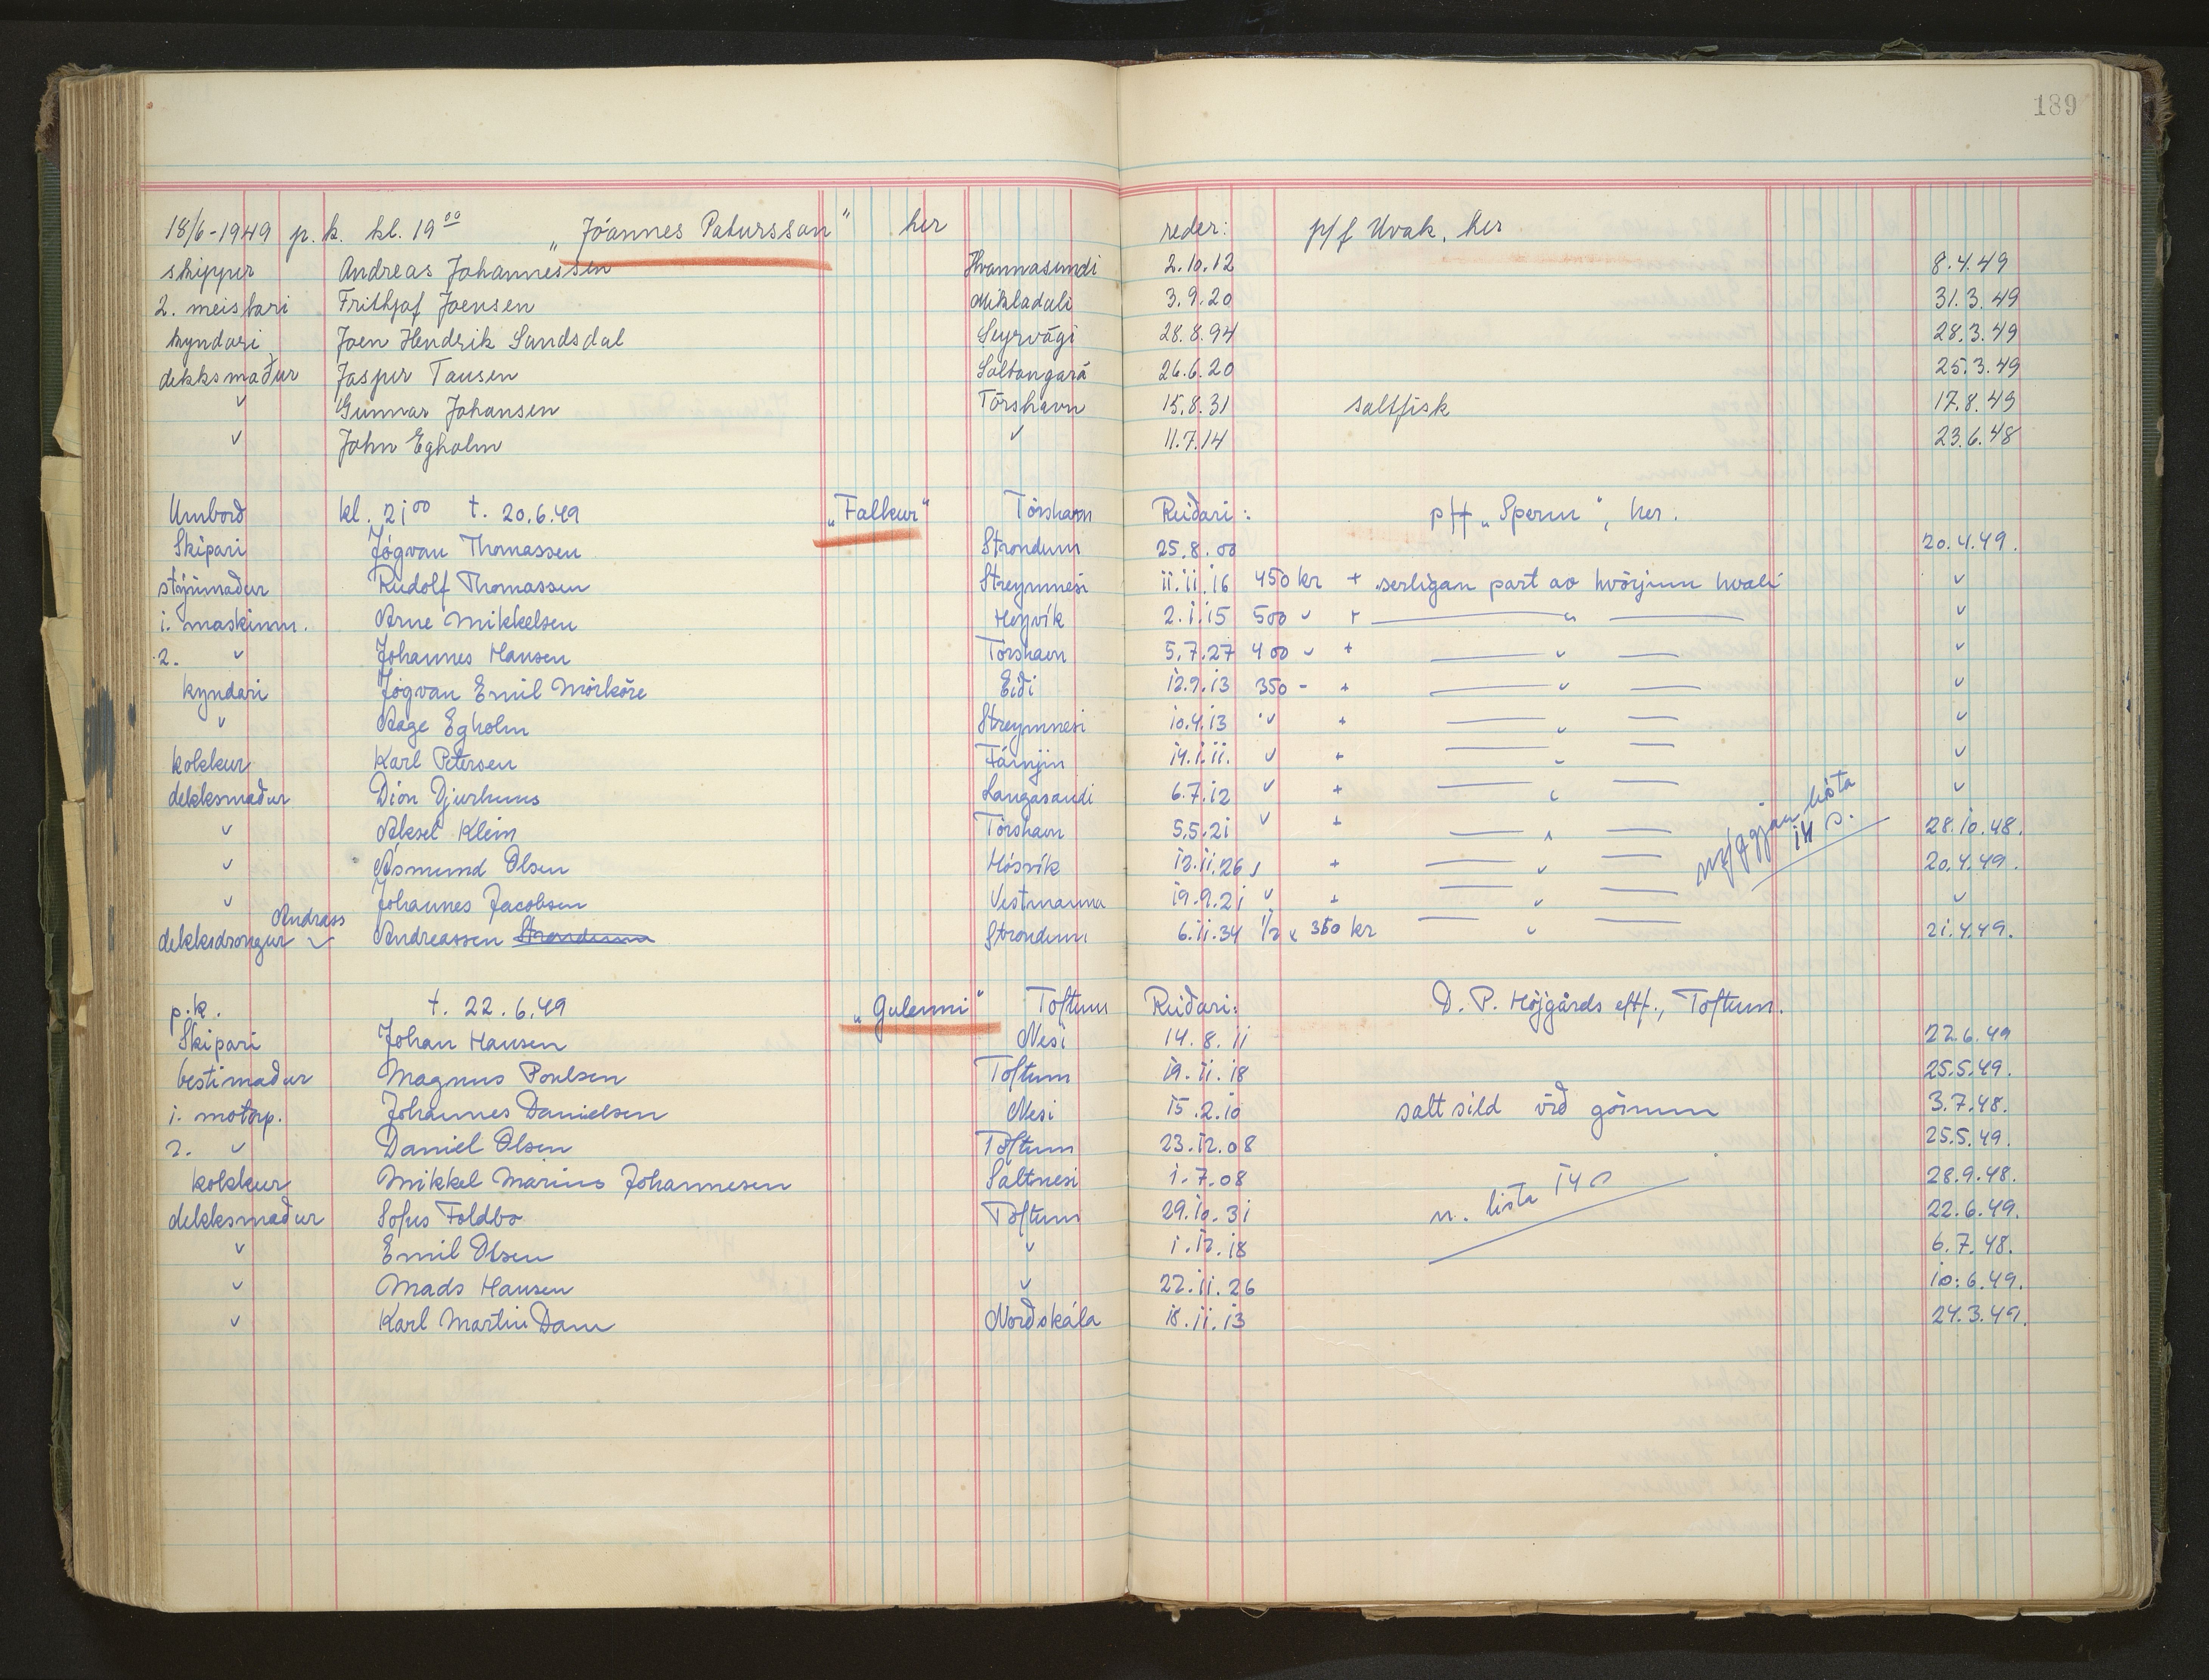 189
18/6-1949 p.k. kl. 19⁰⁰ „Jóannes Patursson“ her reder: p/f Hvak, her
skippur Andreas Johannessen Hvannasundi 2.10.12 8.4.49
2. meistari Frithjof Joensen Mikladali 3.9.20 31.3.49
kyndari Joen Hendrik Sandsdal Seyrvági 28.8.94 28.3.49
dekksmaður Jaspur Tausen Saltangará 26.6.20 25.3.49
〃 Gunnar Johansen Tórshavn 15.8.31 saltfisk 17.8.49
〃 John Egholm 〃 11.7.14 23.6.48
Umborð kl. 21⁰⁰ t. 20.6.49 „Falkur“ Tórshavn Reiðari: p/f „Sperm“, her.
Skipari Jógvan Thomassen Strondum 25.8.00 20.4.49.
stýrimaður Rudolf Thomassen Streymnesi 11.11.16 450 kr + serligan part av hvörjum hvali 〃
1. maskinm. Arne Mikkelsen Hoyvík 2.1.15 500 〃 + 〃 〃
2. 〃 Johannes Hansen Tórshavn 5.7.27 400 〃 + 〃 〃
kyndari Jógvan Emil Mörköre Eiði 12.9.13 350 - + 〃 〃
〃 Aage Egholm Streymnesi 10.4.13 〃 + 〃 〃
kokkur Karl Petersen Fámjin 14.1.11. 〃 + 〃 〃
dekksmaður Dion Djurhuus Langasandi 6.7.12 〃 + 〃 〃
〃 Aksel Klein Tórshavn 5.5.21 〃 + 〃 28.10.48.
〃 Ásmund Olsen Hósvík 12.11.26 〃 + 〃 20.4.49.
〃 Johannes Jacobsen Vestmanna 19.9.21 〃 + 〃 〃
Andrass
dekksdrongur Andreassen Strondum Strondum 6.11.34 1/2 x 350 kr 〃 21.4.49.
lista
14 s.
p.k. t. 22.6.49 „Gulenni“ Toftum Reiðari: D. P. Höjgårds eftf., Toftum.
Skipari Johan Hansen Nesi 14.8.11 22.6.49
bestimaður Magnus Poulsen Toftum 19.11.18 25.5.49.
1. motorp. Johannes Danielsen Nesi 15.2.10 salt sild við görnum 3.7.48.
2. 〃 Daniel Olsen Toftum 23.12.08 25.5.49.
kokkur Mikkel Marius Johannesen Saltnesi 1.7.08 28.9.48.
dekksmaður Sofus Foldbo Toftum 29.10.31 n. lista 14 s 22.6.49.
〃 Emil Olsen 〃 1.12.18 6.7.48.
〃 Mads Hansen 〃 22.11.26 10.6.49.
〃 Karl Martin Dam Norðskála 18.11.13 24.3.49.